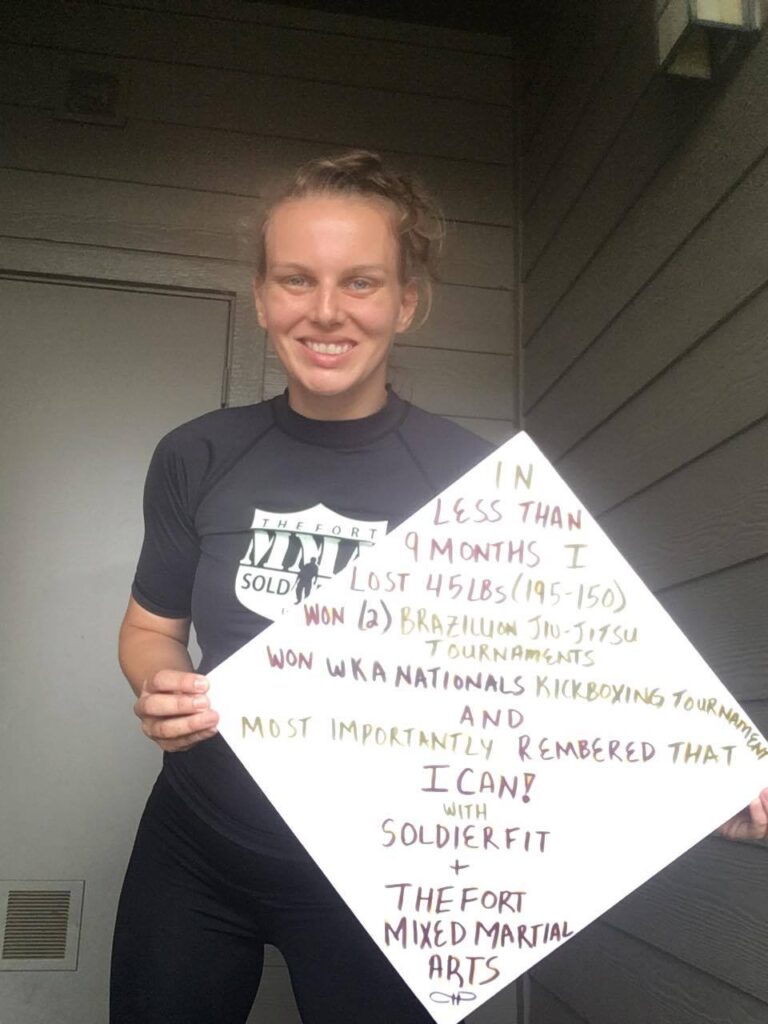 THE FORT
MMA
SOLD
IN
LESS THAN
9 MONTHS I
LOST 45LBS (195-150)
WON (2) BRAZILLION JIU-JITSU
TOURNAMENTS
WON WKA NATIONALS KICKBOXING TOURNAMENT
AND
MOST IMPORTANTLY REMBERED THAT
I CAN!
WITH
SOLDIERFIT
+
THEFORT
MIXED MARTIAL
ARTS